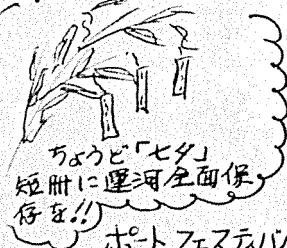 ちょうど「七夕」
短冊に運河全面保
存を!!
ポートフェスティバ